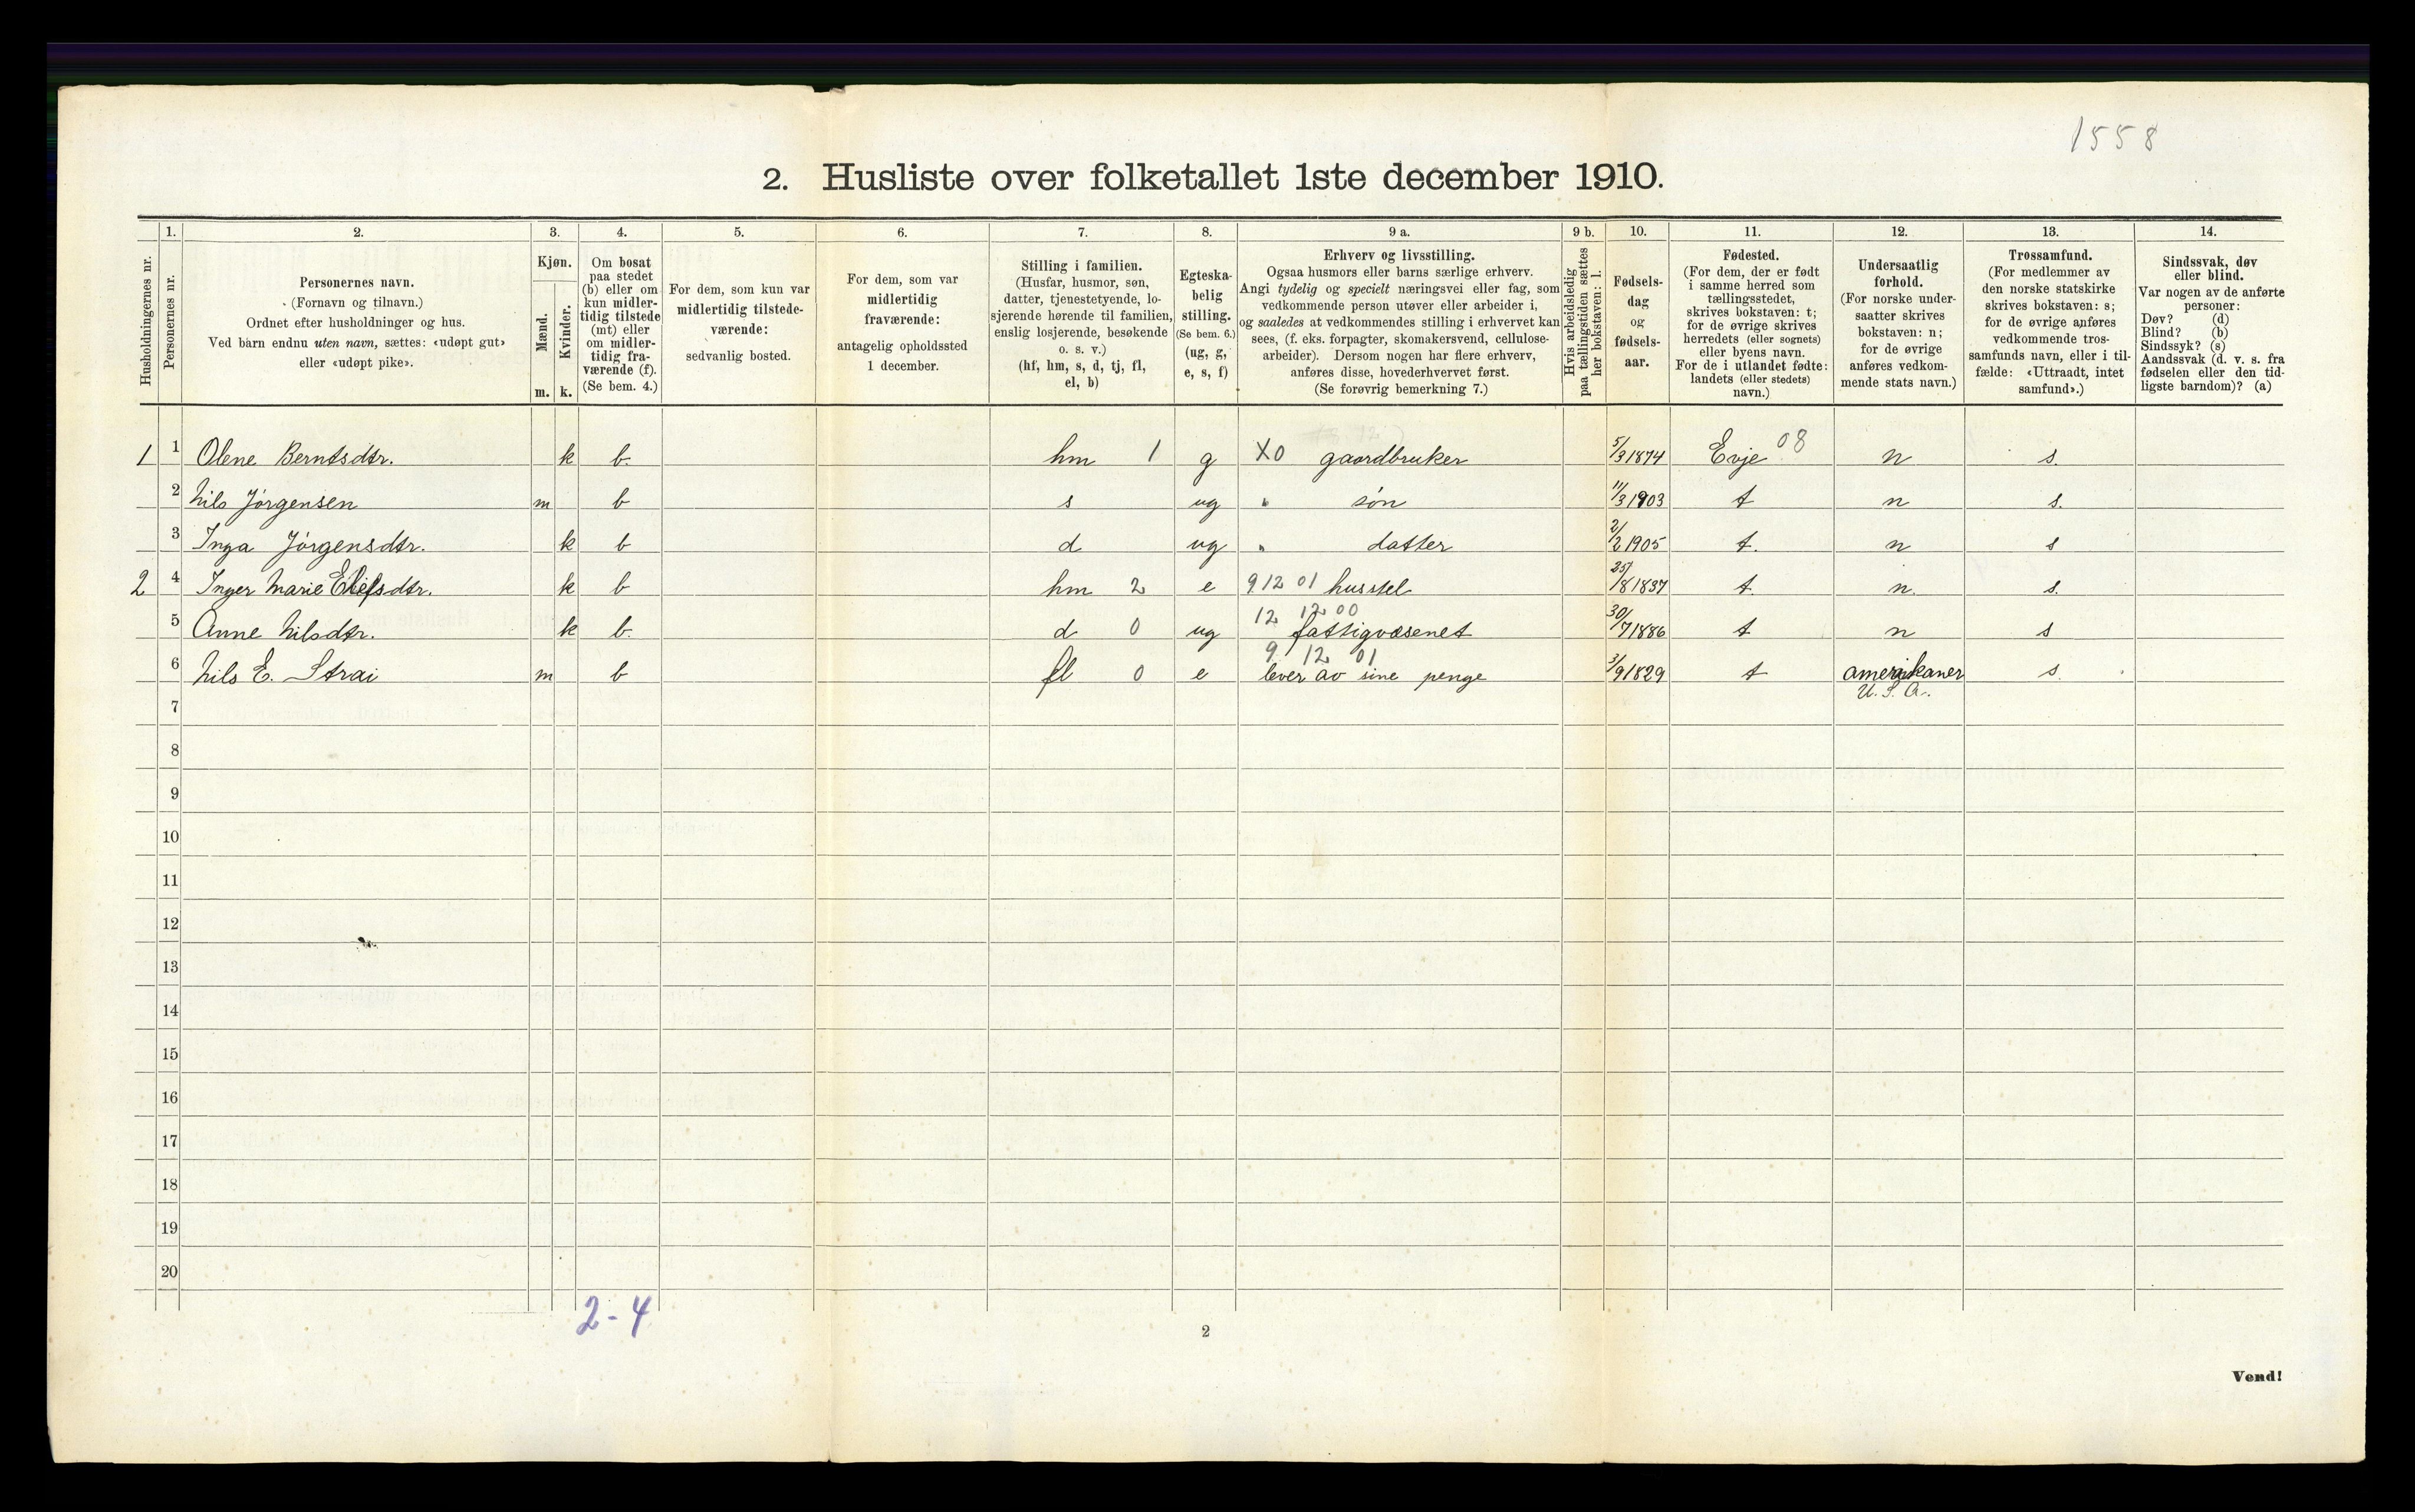 1558
2. Husliste over folketallet 1ste december 1910.
Husholdningernes nr.
1.
Personernes nr.
2.
Personernes navn.
(Fornavn og tilnavn.)
Ordnet efter husholdninger og hus.
Ved barn endnu uten navn, sættes: «udøpt gut»
eller «udøpt pike».
3.
Kjøn.
Mænd.
Kvinder.
m. k.
4.
Om bosat
paa stedet
(b) eller om
kun midler-
tidig tilstede
(mt) eller
om midler-
tidig fra-
værende (f).
(Se bem. 4.)
5.
For dem, som kun var
midlertidig tilstede-
værende:
sedvanlig bosted.
6.
For dem, som var
midlertidig
fraværende:
antagelig opholdssted
1 december.
7.
Stilling i familien.
(Husfar, husmor, søn,
datter, tjenestetyende, lo-
sjerende hørende til familien,
enslig losjerende, besøkende
o. s. v.)
(hf, hm, s, d, tj, fl,
el, b)
8.
Egteska-
belig
stilling.
(Se bem. 6.)
(ug, g,
e, s, f)
9 a.
Erhverv og livsstilling.
Ogsaa husmors eller barns særlige erhverv.
Angi tydelig og specielt næringsvei eller fag, som
vedkommende person utøver eller arbeider i,
og saaledes at vedkommendes stilling i erhvervet kan
sees, (f. eks. forpagter, skomakersvend, cellulose-
arbeider). Dersom nogen har flere erhverv,
anføres disse, hovederhvervet først.
(Se forøvrig bemerkning 7.)
9 b.
Hvis arbeidsledig
paa tællingstiden sættes
her bokstaven: l.
10.
Fødsels-
dag
og
fødsels-
aar.
11.
Fødested.
(For dem, der er født
i samme herred som
tællingsstedet,
skrives bokstaven: t;
for de øvrige skrives
herredets (eller sognets)
eller byens navn.
For de i utlandet fødte:
landets (eller stedets)
navn.)
12.
Undersaatlig
forhold.
(For norske under-
saatter skrives
bokstaven: n;
for de øvrige
anføres vedkom-
mende stats navn.)
13.
Trossamfund.
(For medlemmer av
den norske statskirke
skrives bokstaven: s;
for de øvrige anføres
vedkommende tros-
samfunds navn, eller i til-
fælde: «Uttraadt, intet
samfund».)
14.
Sindssvak, døv
eller blind.
Var nogen av de anførte
personer:
Døv? (d)
Blind? (b)
Sindssyk? (s)
Aandssvak (d. v. s. fra
fødselen eller den tid-
ligste barndom)? (a)
1 1 Olene Berntsdtr. k b. hm 1 g X0 gaardbruker 5/3 1874 Evje 08 n s.
2 Nils Jörgensen m b s ug " sön 11/3 1903 t n s.
3 Inga Jörgensdtr. k b d ug " datter 2/2 1905 t. n s
2 4 Inger Marie Elefsdtr. k b hm 2 e 9 12 01 husstel 25/8 1837 t n. s.
12 12 00
5 Anne Nilsdtr. k b. d 0 ug fattigvæsenet 30/7 1886 t n s
9 12 01
6 Nils E. Strai m b fl 0 e lever av sine penge 3/9 1829 t amerikaner s.
U. S. A.
7
8
9
10
11
12
13
14
15
16
17
18
19
20
2-4
2
Vend!